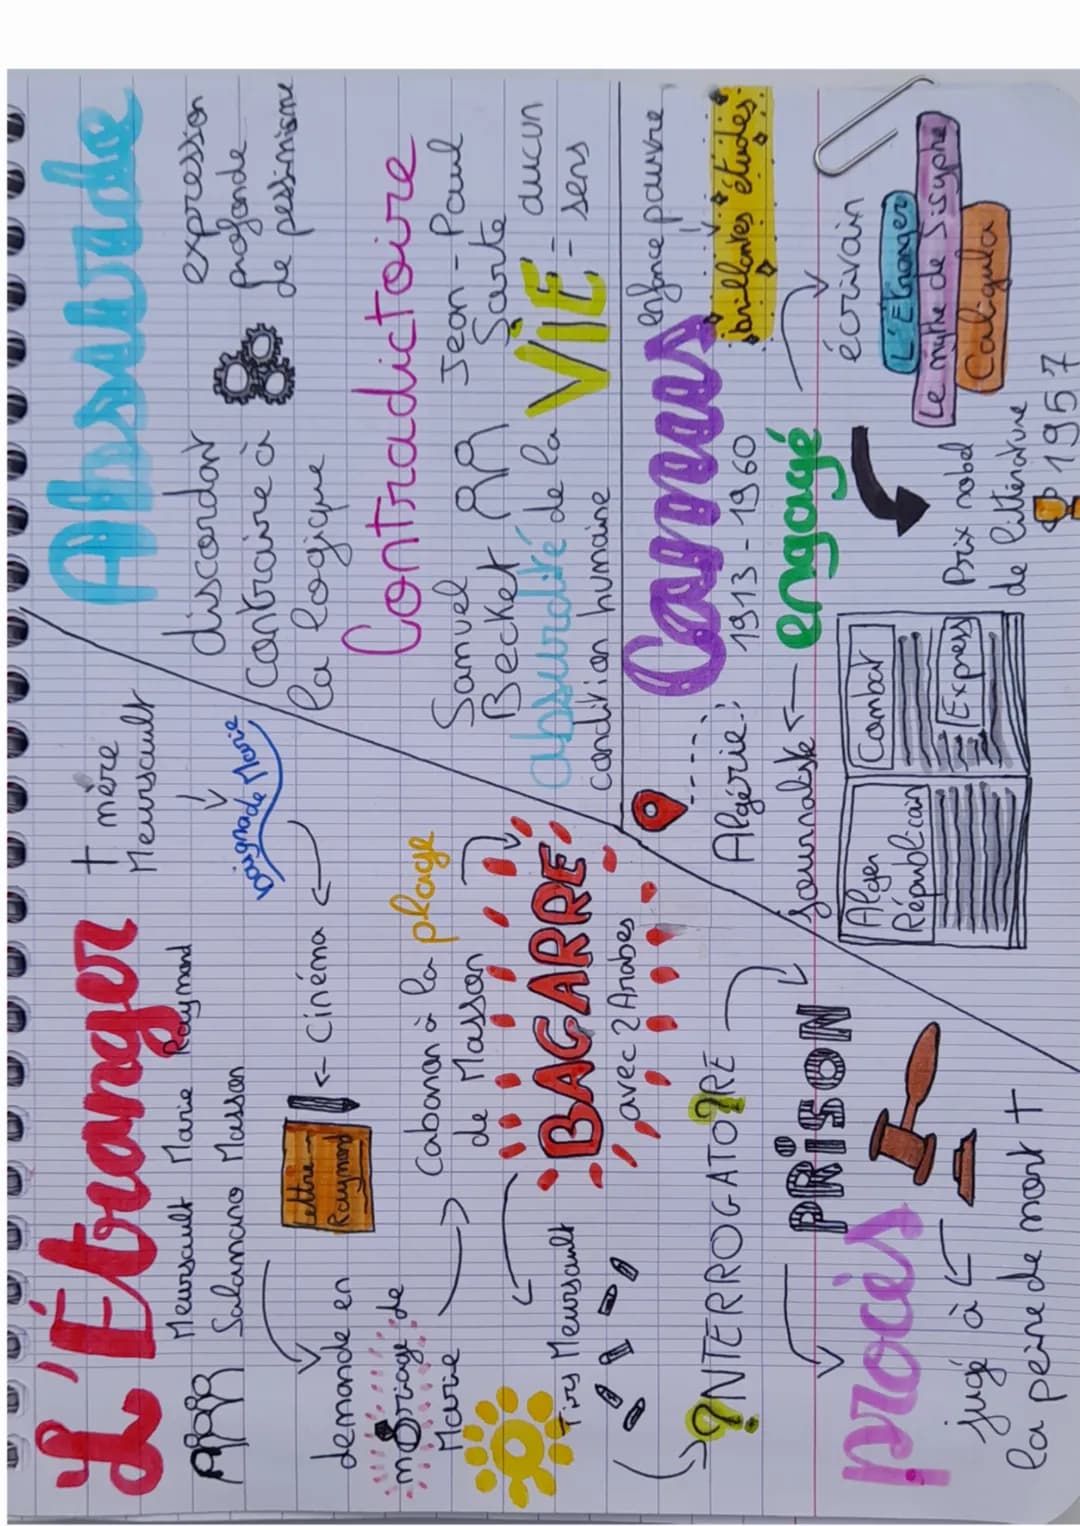 L'Étranger
Meursault Marie Raymond
Salamano Masson
† mère
Meursault
baignade Marie
Cinéma
Lettre
Raymond
demande en
mariage de
Marie
Cabanon à la plage
de Masson
BAGARRE
avec 2 Arabes
Tirs Meursault
INTERROGATOIRE
PRISON
procès
jugé à
la peine de mort †
Absurde
discordant
contraire à
la logique
expression
profonde
de pessimisme
Contradictoire
Samuel
Becket
Jean-Paul
Sarte
absurdité de la VIE = aucun
sens
condition humaine
Camus
1913-1960
enfance pauvre
brillantes études
Algérie
engagé
journaliste
Alger
Républicain
Combat
Express
écrivain
L'Étranger
Le mythe de Sisyphe
Caligula
Prix nobel
de littérature
1957